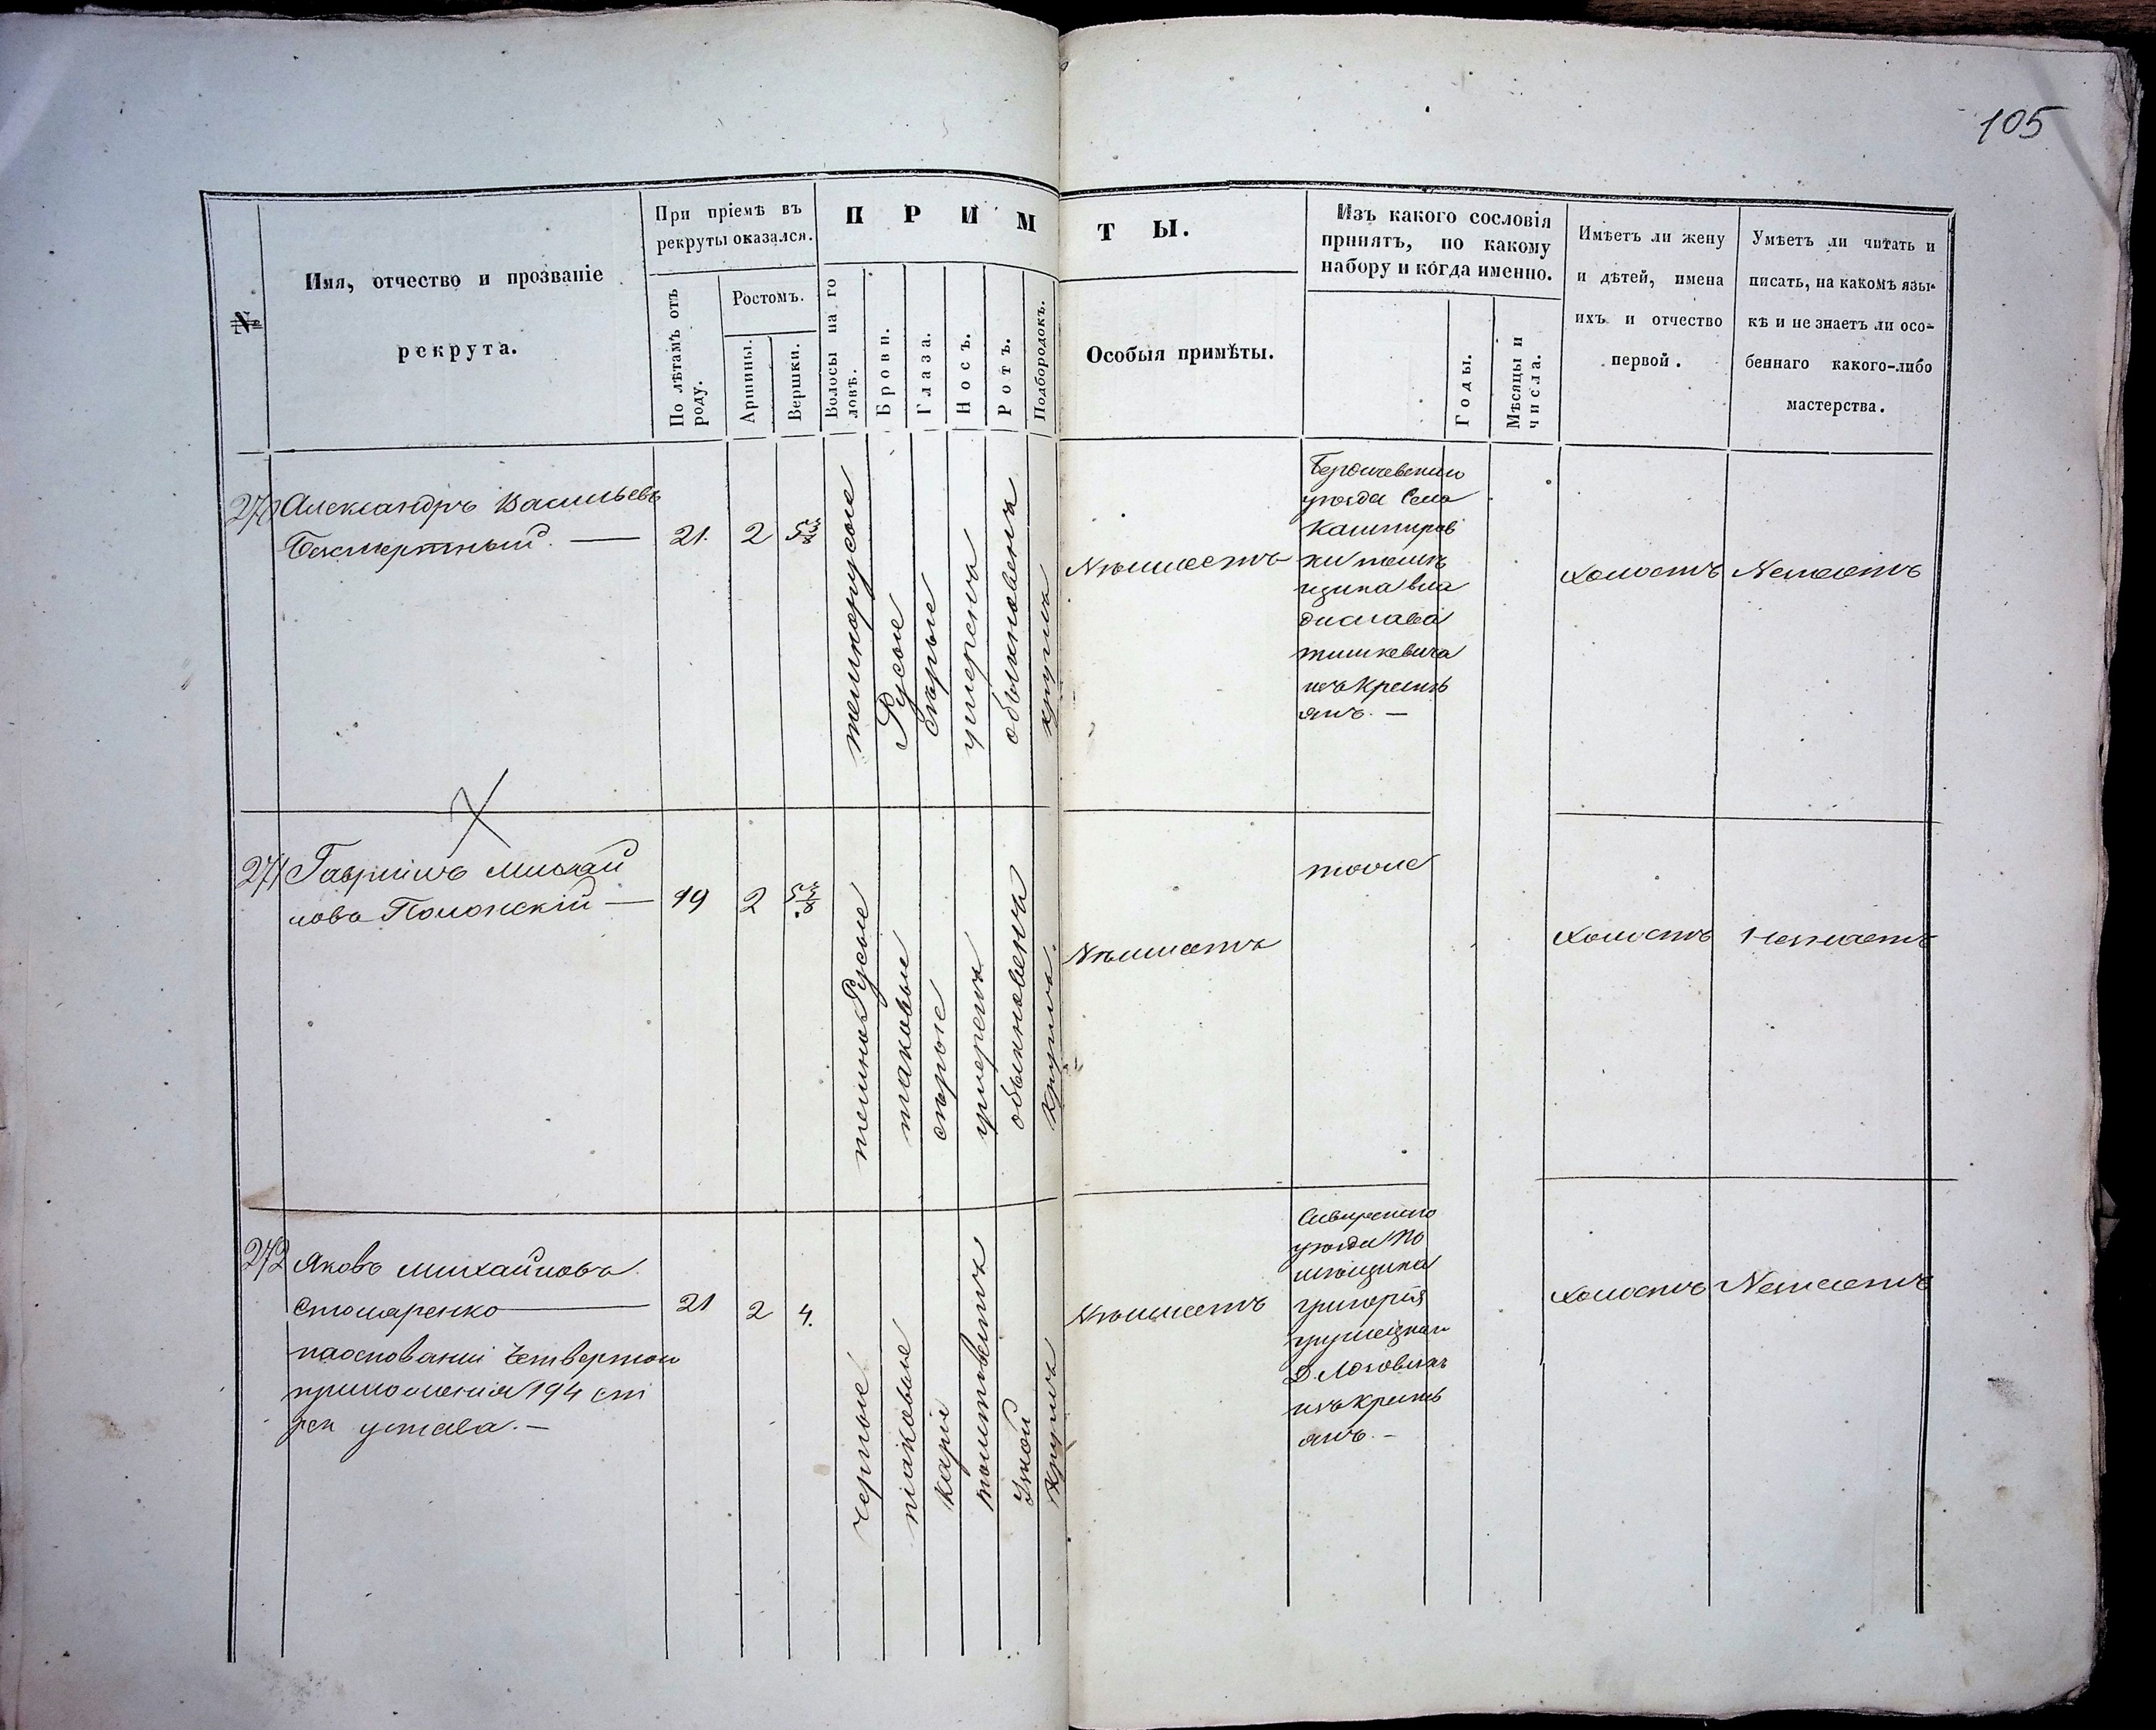 105
№
Имя, отчество и прозваніе
рекрута.
При пріемѣ въ
рекруты оказался.
По лѣтамъ отъ
роду.
Ростомъ.
Аршины.
Вершки.
ПРИМ
ТЫ.
Волосы на го
ловѣ.
Брови.
Глаза.
Носъ.
Ротъ.
Подбородокъ.
Особыя примѣты.
Изъ какого сословія
принятъ, по какому
набору и когда именно.
Годы.
Мѣсяцы и
числа.
Имѣетъ ли жену
и дѣтей, имена
ихъ и отчество
первой.
Умѣетъ ли читать и
писать, на какомъ язы-
кѣ и не знаетъ ли осо-
беннаго какого-либо
мастерства.
270
Александръ Васильевъ
Безсмертный. —
21.
2
5 3/8
темнорусые
Русые
сѣрые
умеренъ
обыкновенъ
круглъ
Неимеетъ
Бердичевскаго
уезда Села
Кашперов
ки помѣ
щика вла
дислава
тишкевича
изъ Крестьѣ
янъ. —
холостъ
Незнаетъ
271
Гавріилъ Михай
ловъ Полонскій —
19
2
5 3/8
темноРусые
таковые
сѣрые
умеренъ
обыкновенъ
круглъ.
Неимеетъ
тоже
холостъ
Незнаетъ
272
Яковъ Михайловъ
столяренко —
наосновании Четвертого
приложения 194 ст
рек устава. —
21
2
4.
черные
таковые
каріи
Узкой
круглъ
Неимеетъ
Сквирскаго
уезда По
мѣщика
григорія
изъ Крестьѣ
янъ. —
холостъ
Незнаетъ